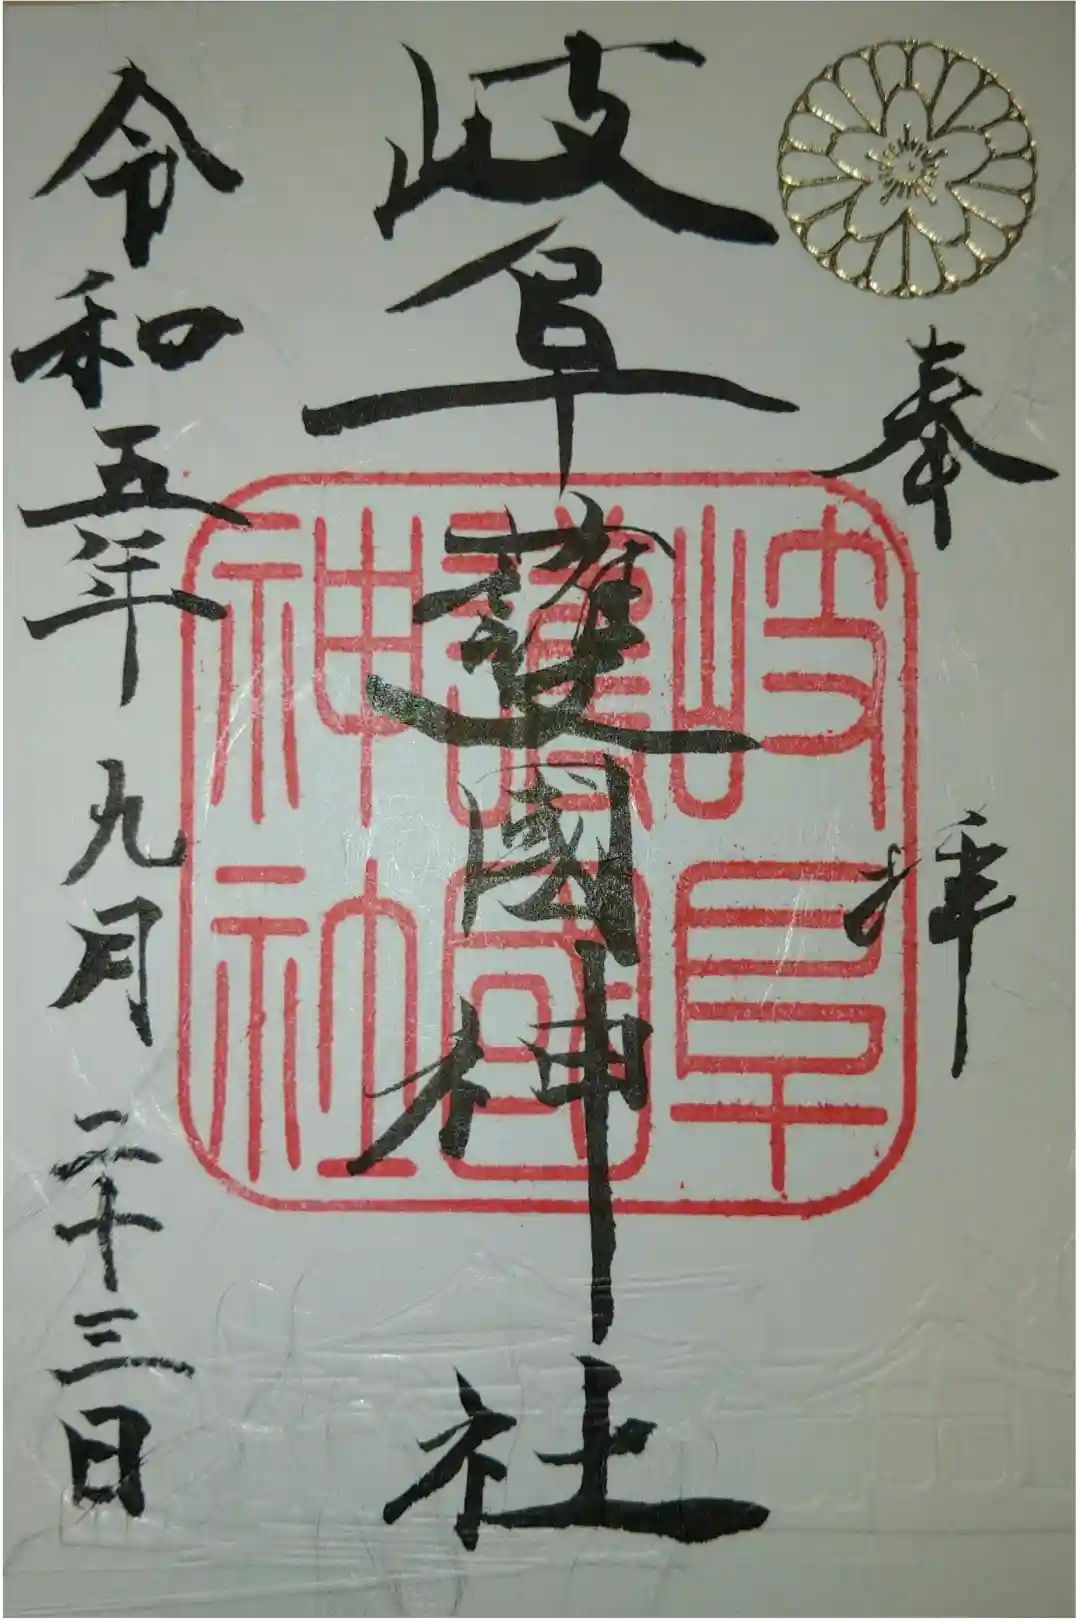 奉拝
岐阜護國神社
岐阜
護國
神社
令和五年九月二十三日